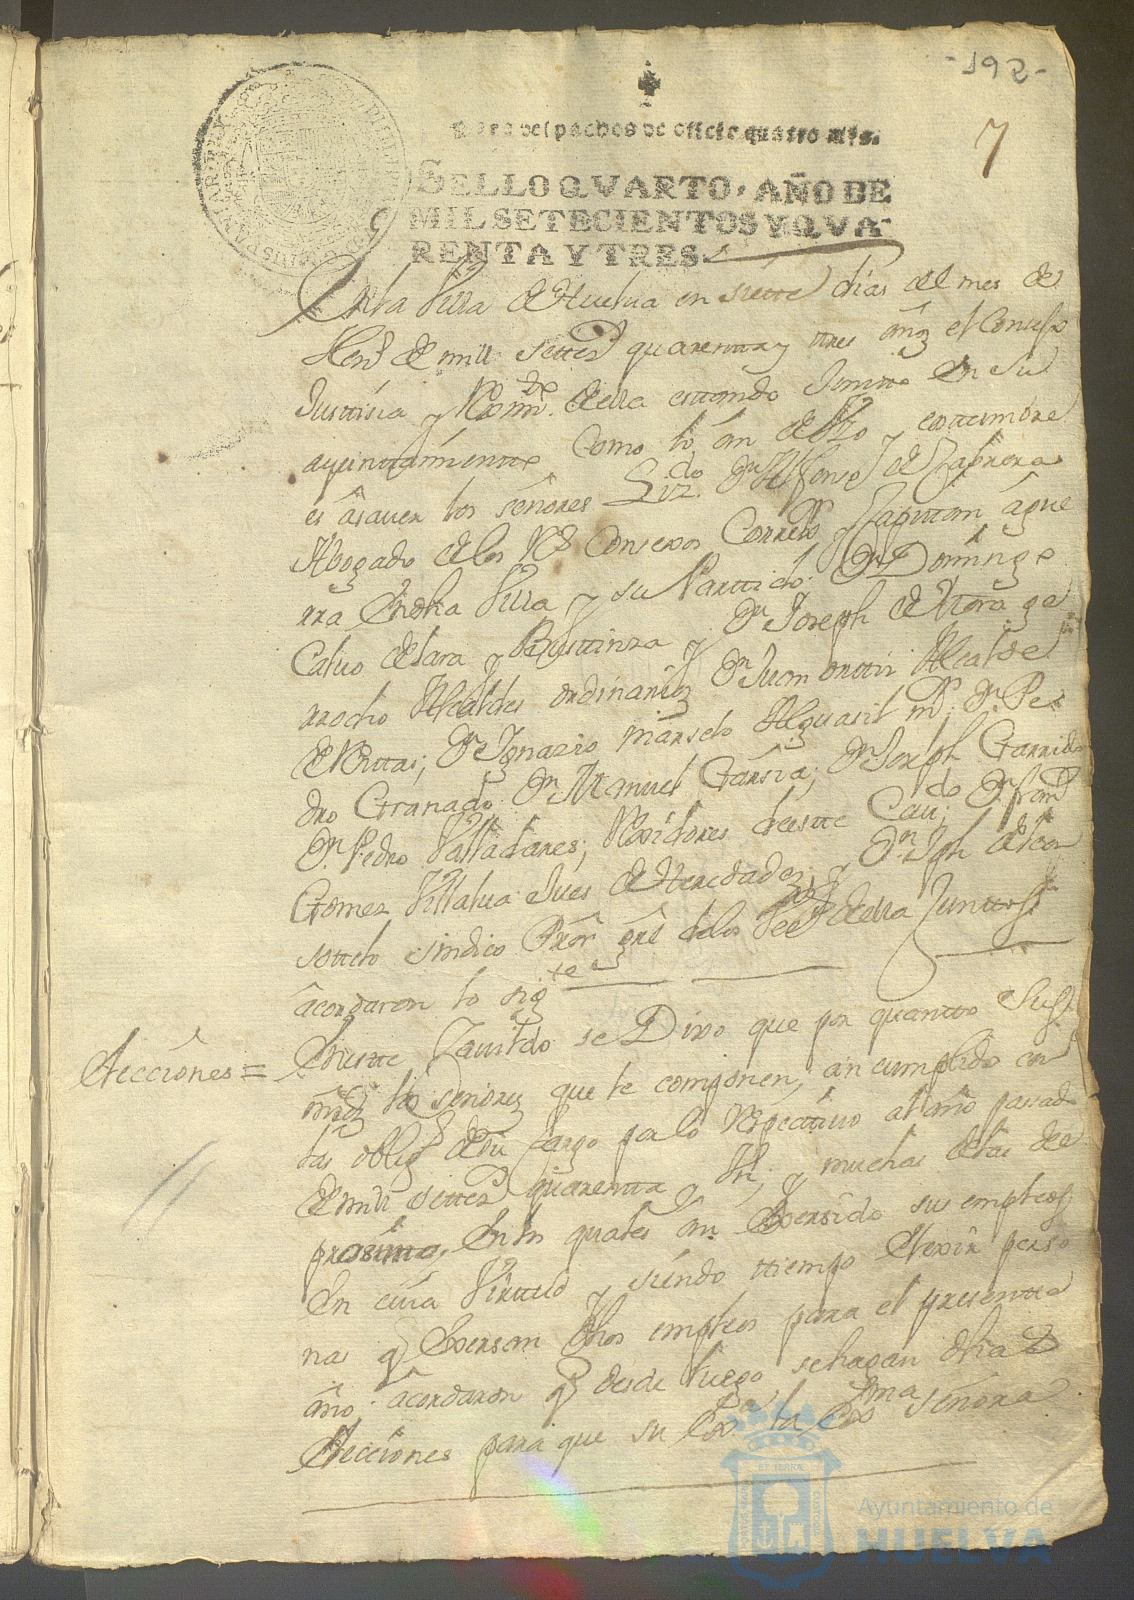 -192-
7
Para despachos de oficio quatro mrs.
SELLO QVARTO, AÑO DE
MIL SETECIENTOS Y QVA-
RENTA Y TRES.
En la Villa de Huelua en siette dias del mes de
Hen.o de mill settez.s quarenta y tres años el Consejo
Justtisia y Reximi.to della estando Juntto en su
ayuntamientto como lo an de Vso y costtumbre
es âsauer los señores Liz.do Dn Alfonso de Cabrera
Abogado de los R.s Consexos Correx.or y Capitan â gue
rra En dha Villa y su Parttido: Dn Domingo
Caluo de lara y Busttinza y Dn Joseph de Mora ga
rrocho Alcaldes ordinarios Dn Juan Alcalde
de Dn Ignazio Manselo Alguasil m.or; Dn Pe
dro Granado Dn Manuel Garsia; Dn Joseph Garrido
Dn Pedro Valladares; Rexidores deeste Cau.do Dn Fran.co
Gomez Villalua Jues de Heredades, y Dn Jph de leon
sottelo sindico Pror. gral de los della Junttos
âcordaron lo sig.te
Elecciones =
En estte Cauildo se Dixo que por quantto Sus
mrds los señores que le componen, an cumplido con
las oblig.s de su Cargo pa lo respectiuo al año passado
de mill settez.s quarenta y dos, y muchas dias de
proximo, En los quales an Exersido sus empleos
En cuia Virttud y siendo ttiempo Elexir perso
nas q Exersan dhos empleos para el presentte
año âcordaron q desde luego se hagan dhas
Elecciones para que su Exa la Exma señora
Ayuntamiento de
HUELVA